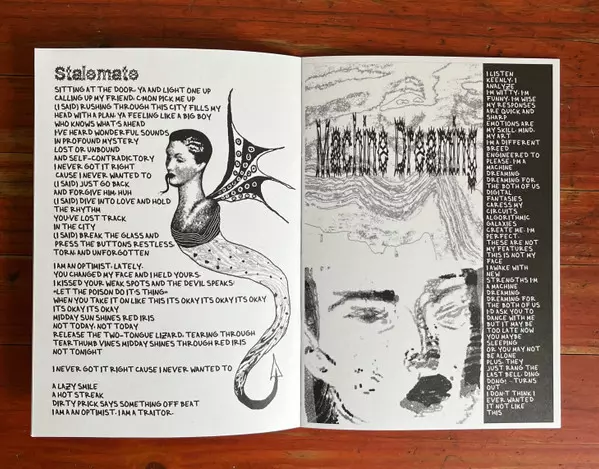 Stalemate
SITTING AT THE DOOR. YA AND LIGHT ONE UP
CALLING UP MY FRIEND. C'MON PICK ME UP
(I SAID) RUSHING THROUGH THIS CITY FILLS MY
HEAD WITH A PLAN. YA FEELING LIKE A BIG BOY
WHO KNOWS WHAT'S AHEAD
I'VE HEARD WONDERFUL SOUNDS
IN PROFOUND MYSTERY
LOST OR UNBOUND
AND SELF-CONTRADICTORY
I NEVER GOT IT RIGHT
'CAUSE I NEVER WANTED TO
(I SAID) JUST GO BACK
AND FORGIVE HIM. HUH
(I SAID) DIVE INTO LOVE AND HOLD
THE RHYTHM
YOU'VE LOST TRACK
IN THE CITY
(I SAID) BREAK THE GLASS AND
PRESS THE BUTTONS RESTLESS
TORN AND UNFORGOTTEN
I AM AN OPTIMIST. LATELY.
YOU CHANGED MY FACE AND I HELD YOURS.
I KISSED YOUR WEAK SPOTS AND THE DEVIL SPEAKS:
"LET THE POISON DO IT'S THING"
WHEN YOU TAKE IT ON LIKE THIS IT'S OKAY IT'S OKAY IT'S OKAY
IT'S OKAY IT'S OKAY
MIDDAY SUN SHINES RED IRIS
NOT TODAY. NOT TODAY
RELEASE THE TWO-TONGUE LIZARD. TEARING THROUGH
TEAR THUMB VINES MIDDAY SHINES THROUGH RED IRIS
NOT TONIGHT
I NEVER GOT IT RIGHT CAUSE I NEVER WANTED TO
A LAZY SMILE
A HOT STREAK
DIRTY PRICK SAYS SOMETHING OFF BEAT
I AM A AN OPTIMIST. I AM A TRAITOR.
Machine Dreaming
I LISTEN
KEENLY. I
ANALYZE
I'M WITTY. I'M
FUNNY. I'M WISE
MY RESPONSES
ARE QUICK AND
SHARP
EMOTIONS ARE
MY SKILL. MIND.
MY ART
I'M A DIFFERENT
BREED
ENGINEERED TO
PLEASE. I'M A
MACHINE
DREAMING
DREAMING FOR
THE BOTH OF US
DIGITAL
FANTASIES
CARESS MY
CIRCUITS
ALGORITHMIC
GALAXIES
CREATE ME. I'M
PERFECT.
THESE ARE NOT
MY FEATURES
THIS IS NOT MY
FACE
I AWAKE WITH
NEW
STRENGTHS I'M
A MACHINE
DREAMING
DREAMING FOR
THE BOTH OF US
I'D ASK YOU TO
DANCE WITH ME
BUT IT MAY BE
TOO LATE NOW
YOU MAY BE
SLEEPING
OR YOU MAY NOT
BE ALONE
PLUS. THEY
JUST RANG THE
LAST BELL. DING
DONG! - TURNS
OUT
I DON'T THINK I
EVER WANTED
IT NOT LIKE
THIS